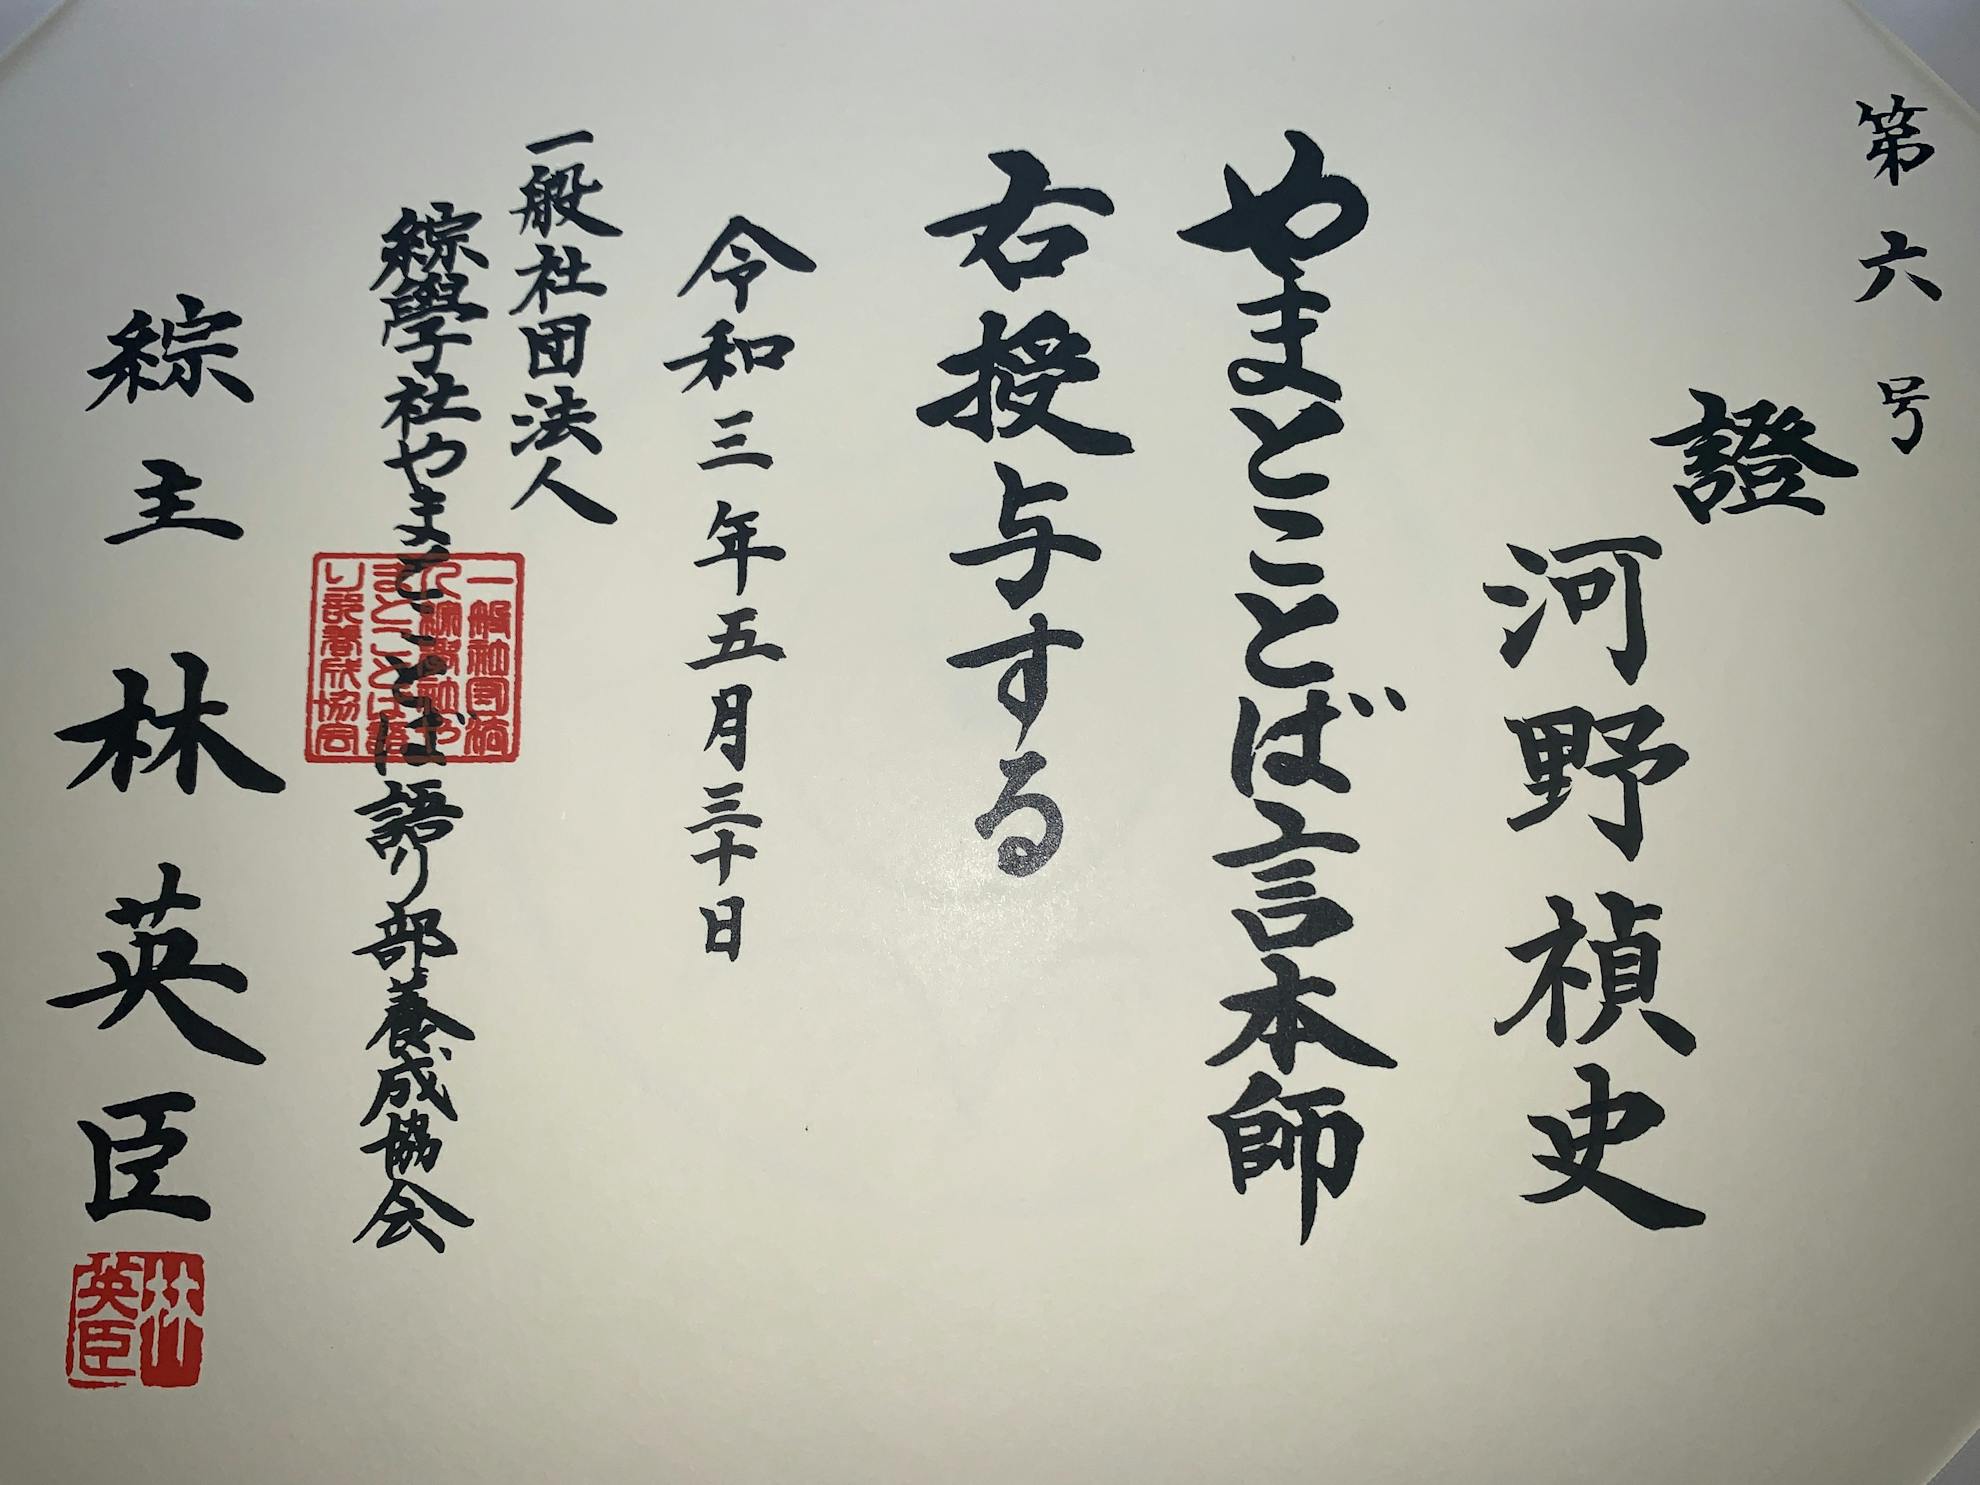 第六号
證
河野禎史
やまとことば言本師
右授与する
令和三年五月三十日
一般社団法人
綜學社やまとことば語り部養成協会
一般社団法
人綜學社や
まとことば語
り部養成協会
綜主 林英臣
林英臣